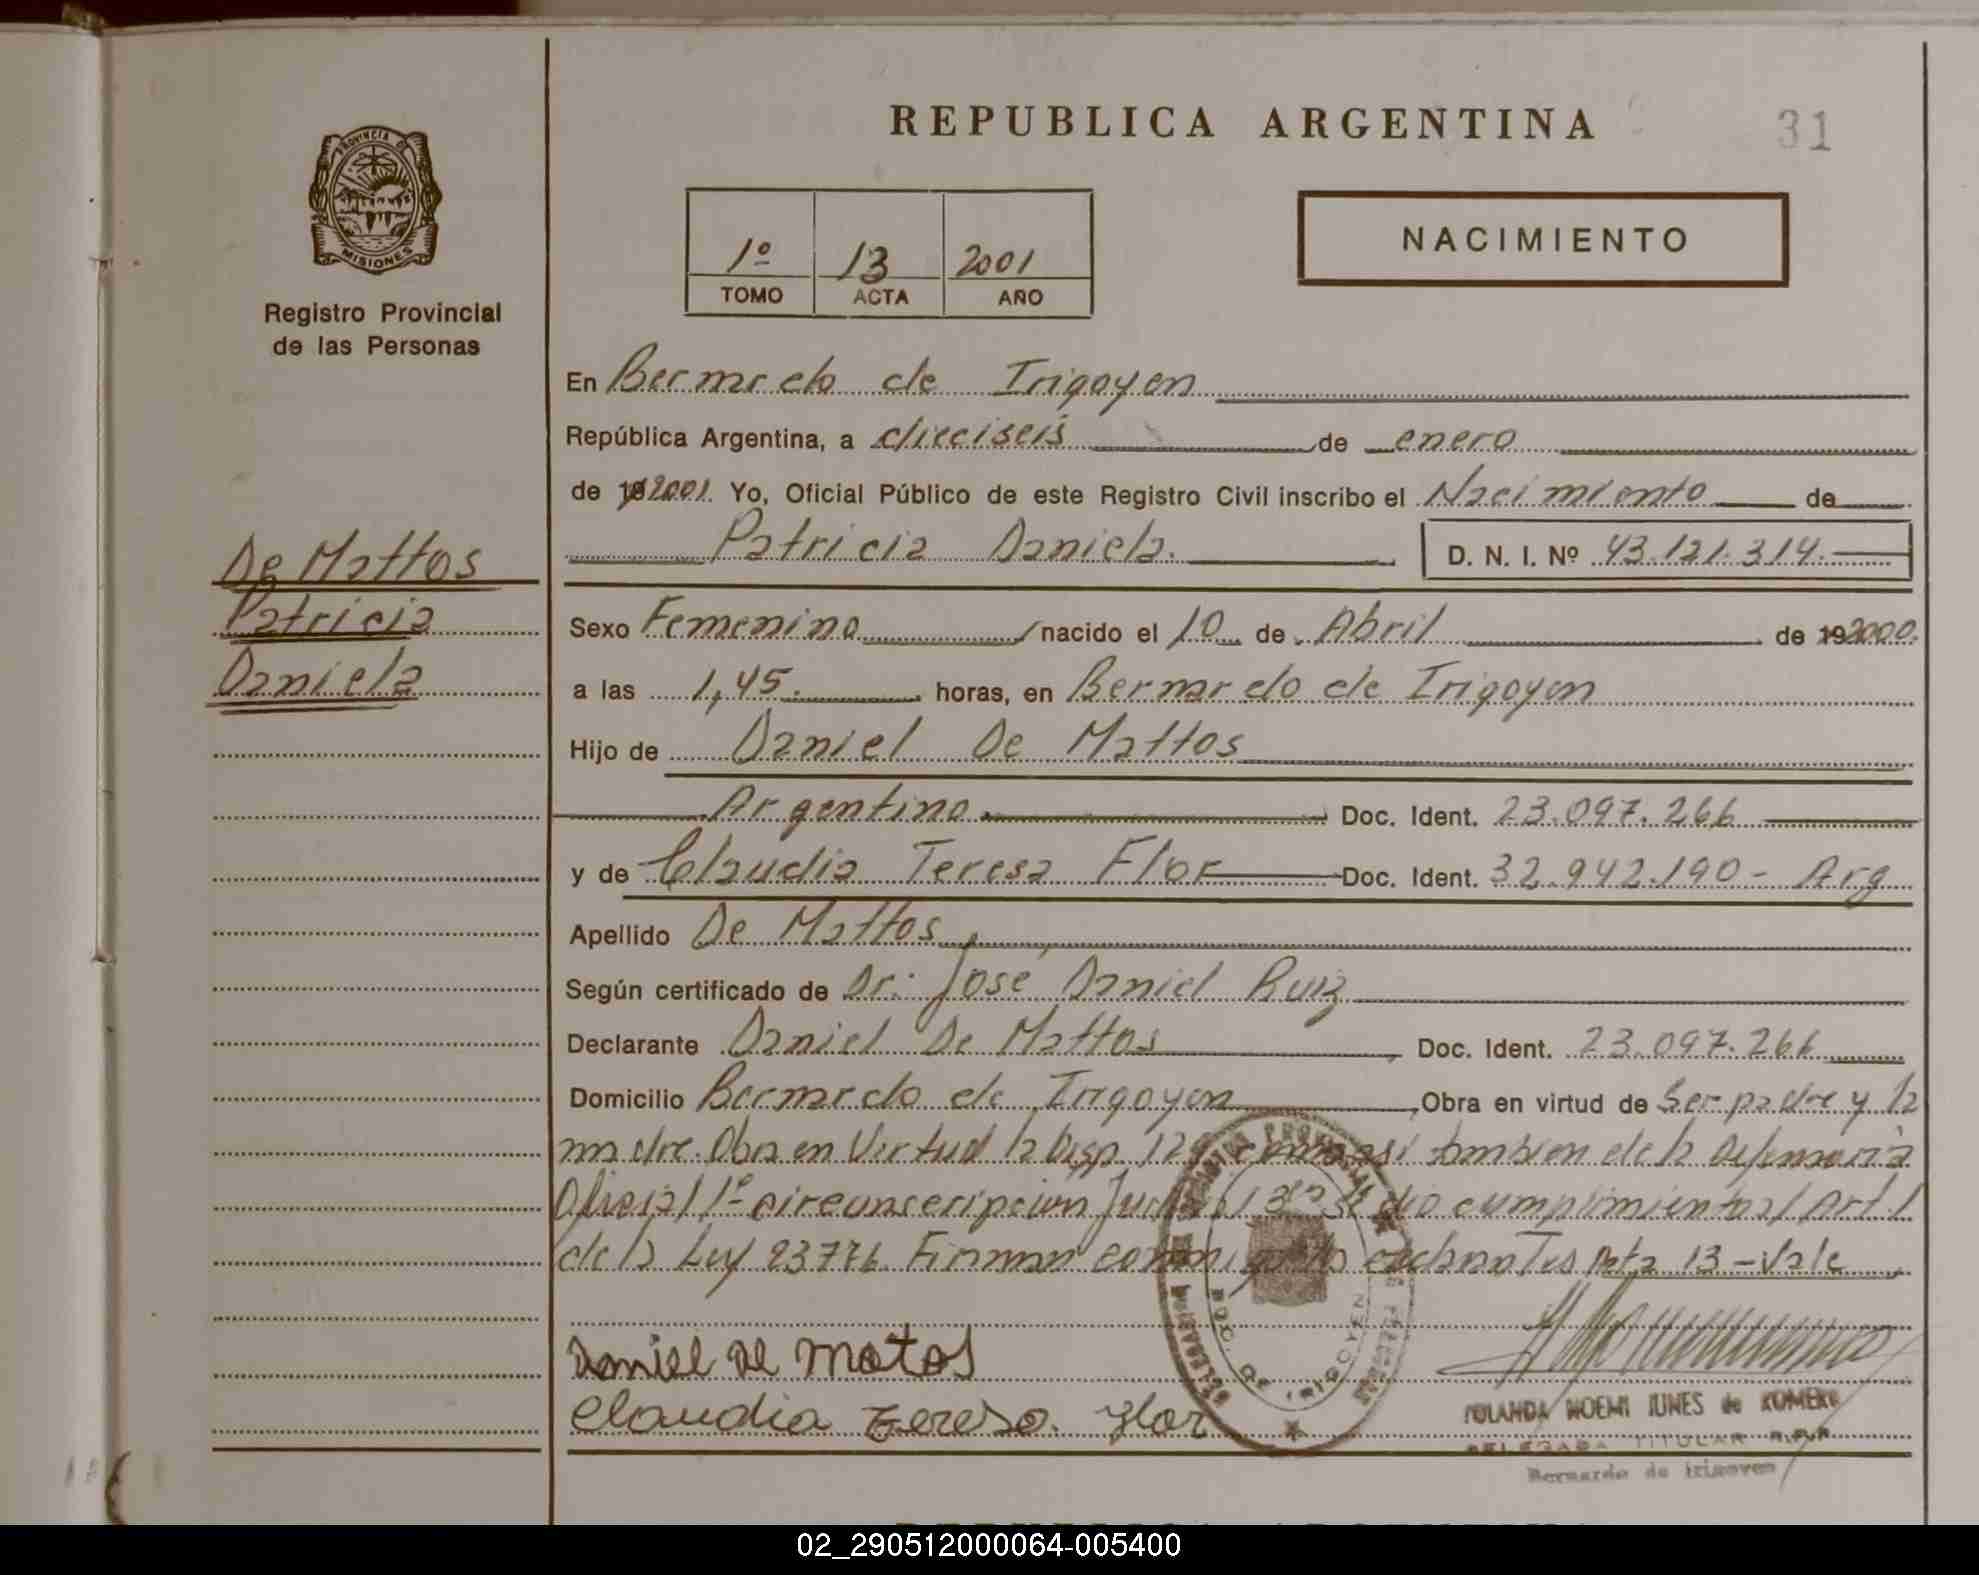 REPUBLICA ARGENTINA
31
PROVINCIA DE
MISIONES
Registro Provincial
de las Personas
1º 13 2001
TOMO ACTA AÑO
NACIMIENTO
En Bernardo de Irigoyen
República Argentina, a dieciseis de enero
de 19 2001 Yo, Oficial Público de este Registro Civil inscribo el Nacimiento de
Patricia Daniela.
D. N. I. Nº 43.121.314.
De Mattos
Patricia
Daniela
Sexo Femenino nacido el 10 de Abril de 19 2000.
a las 1,45. horas, en Bernardo de Irigoyen
Hijo de Daniel De Mattos
Argentino Doc. Ident. 23.097.266
y de Claudia Teresa Flor Doc. Ident. 32.942.190 - Arg
Apellido De Mattos
Según certificado de Dr: José Daniel Ruiz
Declarante Daniel De Mattos Doc. Ident. 23.097.266
Domicilio Bernardo de Irigoyen Obra en virtud de Ser padre y la
madre. Obra en Virtud la Disp. tambien de la Defensoria
Oficial 1º circunscripcion dio cumplimiento al Art. 1
de la Ley 23776. Firman Acta 13 - Vale
Daniel de matos
Claudia Tereso. Flor
BDO. DE IRIGOYEN
YOLANDA NOEMI IUNES de ROMERO
DELEGADA TITULAR R.P.P.
Bernardo de Irigoyen
02_290512000064-005400